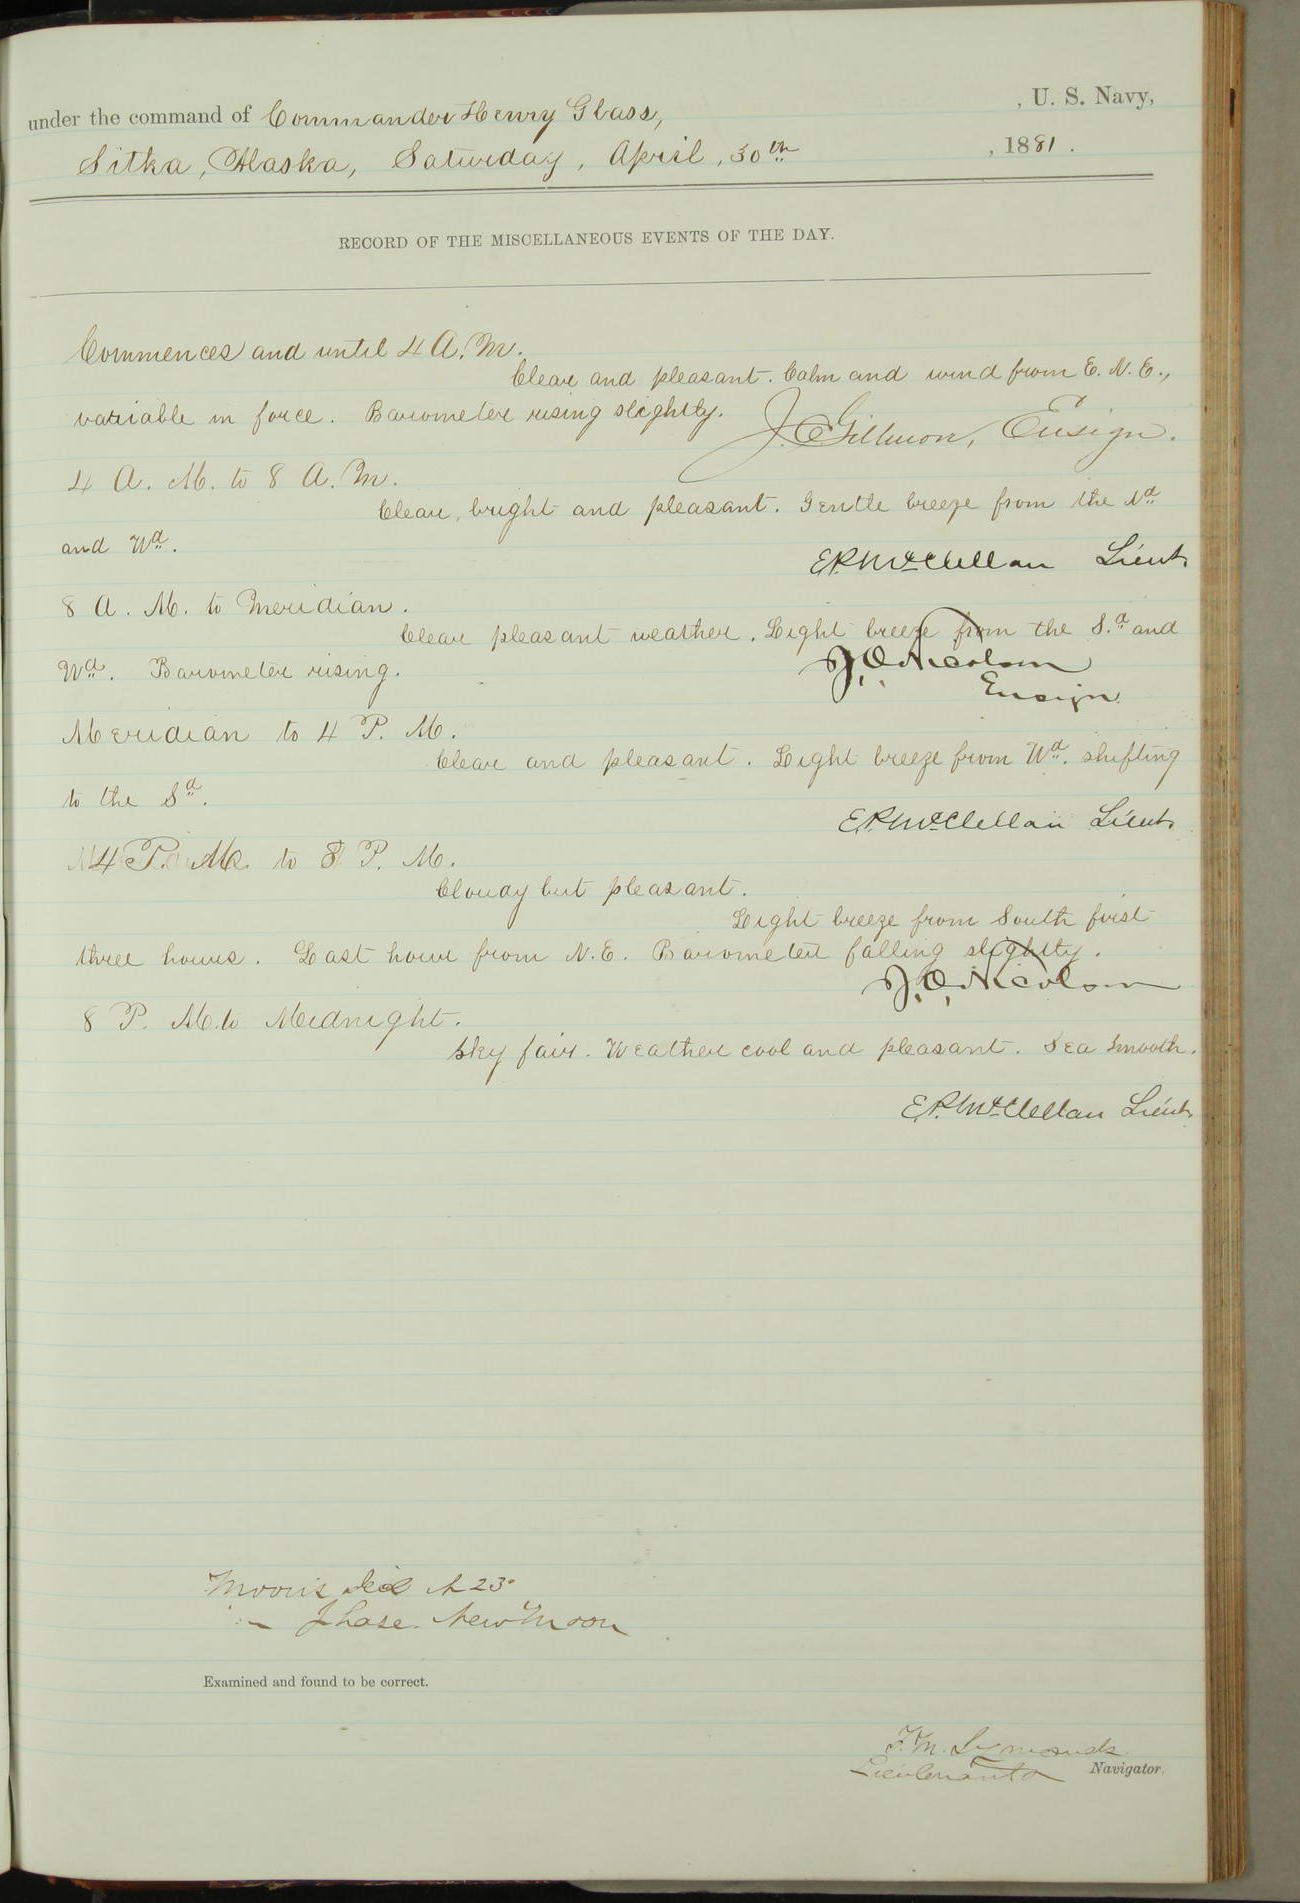 , U. S. Navy,
under the command of Commander Henry Glass,
Sitka, Alaska, Saturday, April, 30th , 1881.
RECORD OF THE MISCELLANEOUS EVENTS OF THE DAY.
Commences and until 4 A. M.
Clear and pleasant. Calm and wind from E. N. E.,
variable in force. Barometer rising slightly.
J. C. Gillmore, Ensign.
4 A. M. to 8 A. M.
Clear, bright and pleasant. Gentle breeze from the Nd
and Wd.
E.R. McClellan Lieut
8 A. M. to Meridian.
Clear pleasant weather. Light breeze from the S.d and
Wd. Barometer rising.
J. O. Nicolson
Ensign
Meridian to 4 P. M.
Clear and pleasant. Light breeze from Wd. shifting
to the Sd.
E.R. McClellan Lieut
4 P. M. to 8 P. M.
Cloudy but pleasant.
Light breeze from South first
three hours. Last hour from N.E. Barometer falling slightly.
J. O. Nicolson
8 P. M. to Midnight.
Sky fair. Weather cool and pleasant. Sea smooth.
E.R. McClellan Lieut
Moon's Decl N 23°
" Phase. New Moon
Examined and found to be correct.
F. M. Symonds
Lieutenant Navigator.